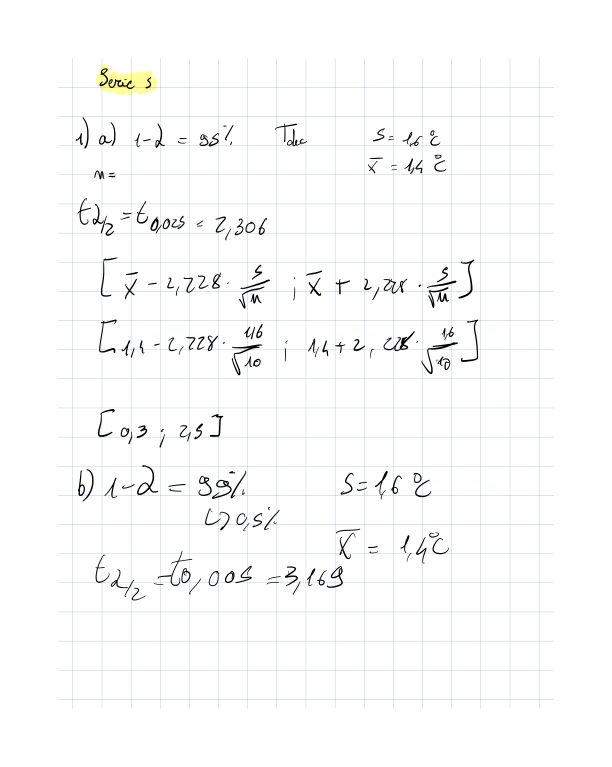 Serie 5
1) a) 1-α = 95% Tdec S = 1,6 °C
n = x̄ = 1,4 °C
tα/2 = t0,025 = 2,306
[ x̄ - 2,228 · s/√n ; x̄ + 2,228 · s/√n ]
[ 1,4 - 2,228 · 1,6/√10 ; 1,4 + 2,228 · 1,6/√10 ]
[ 0,3 ; 2,5 ]
b) 1-α = 99% S = 1,6 °C
↳ 0,5%
x̄ = 1,4 °C
tα/2 = t0,005 = 3,169